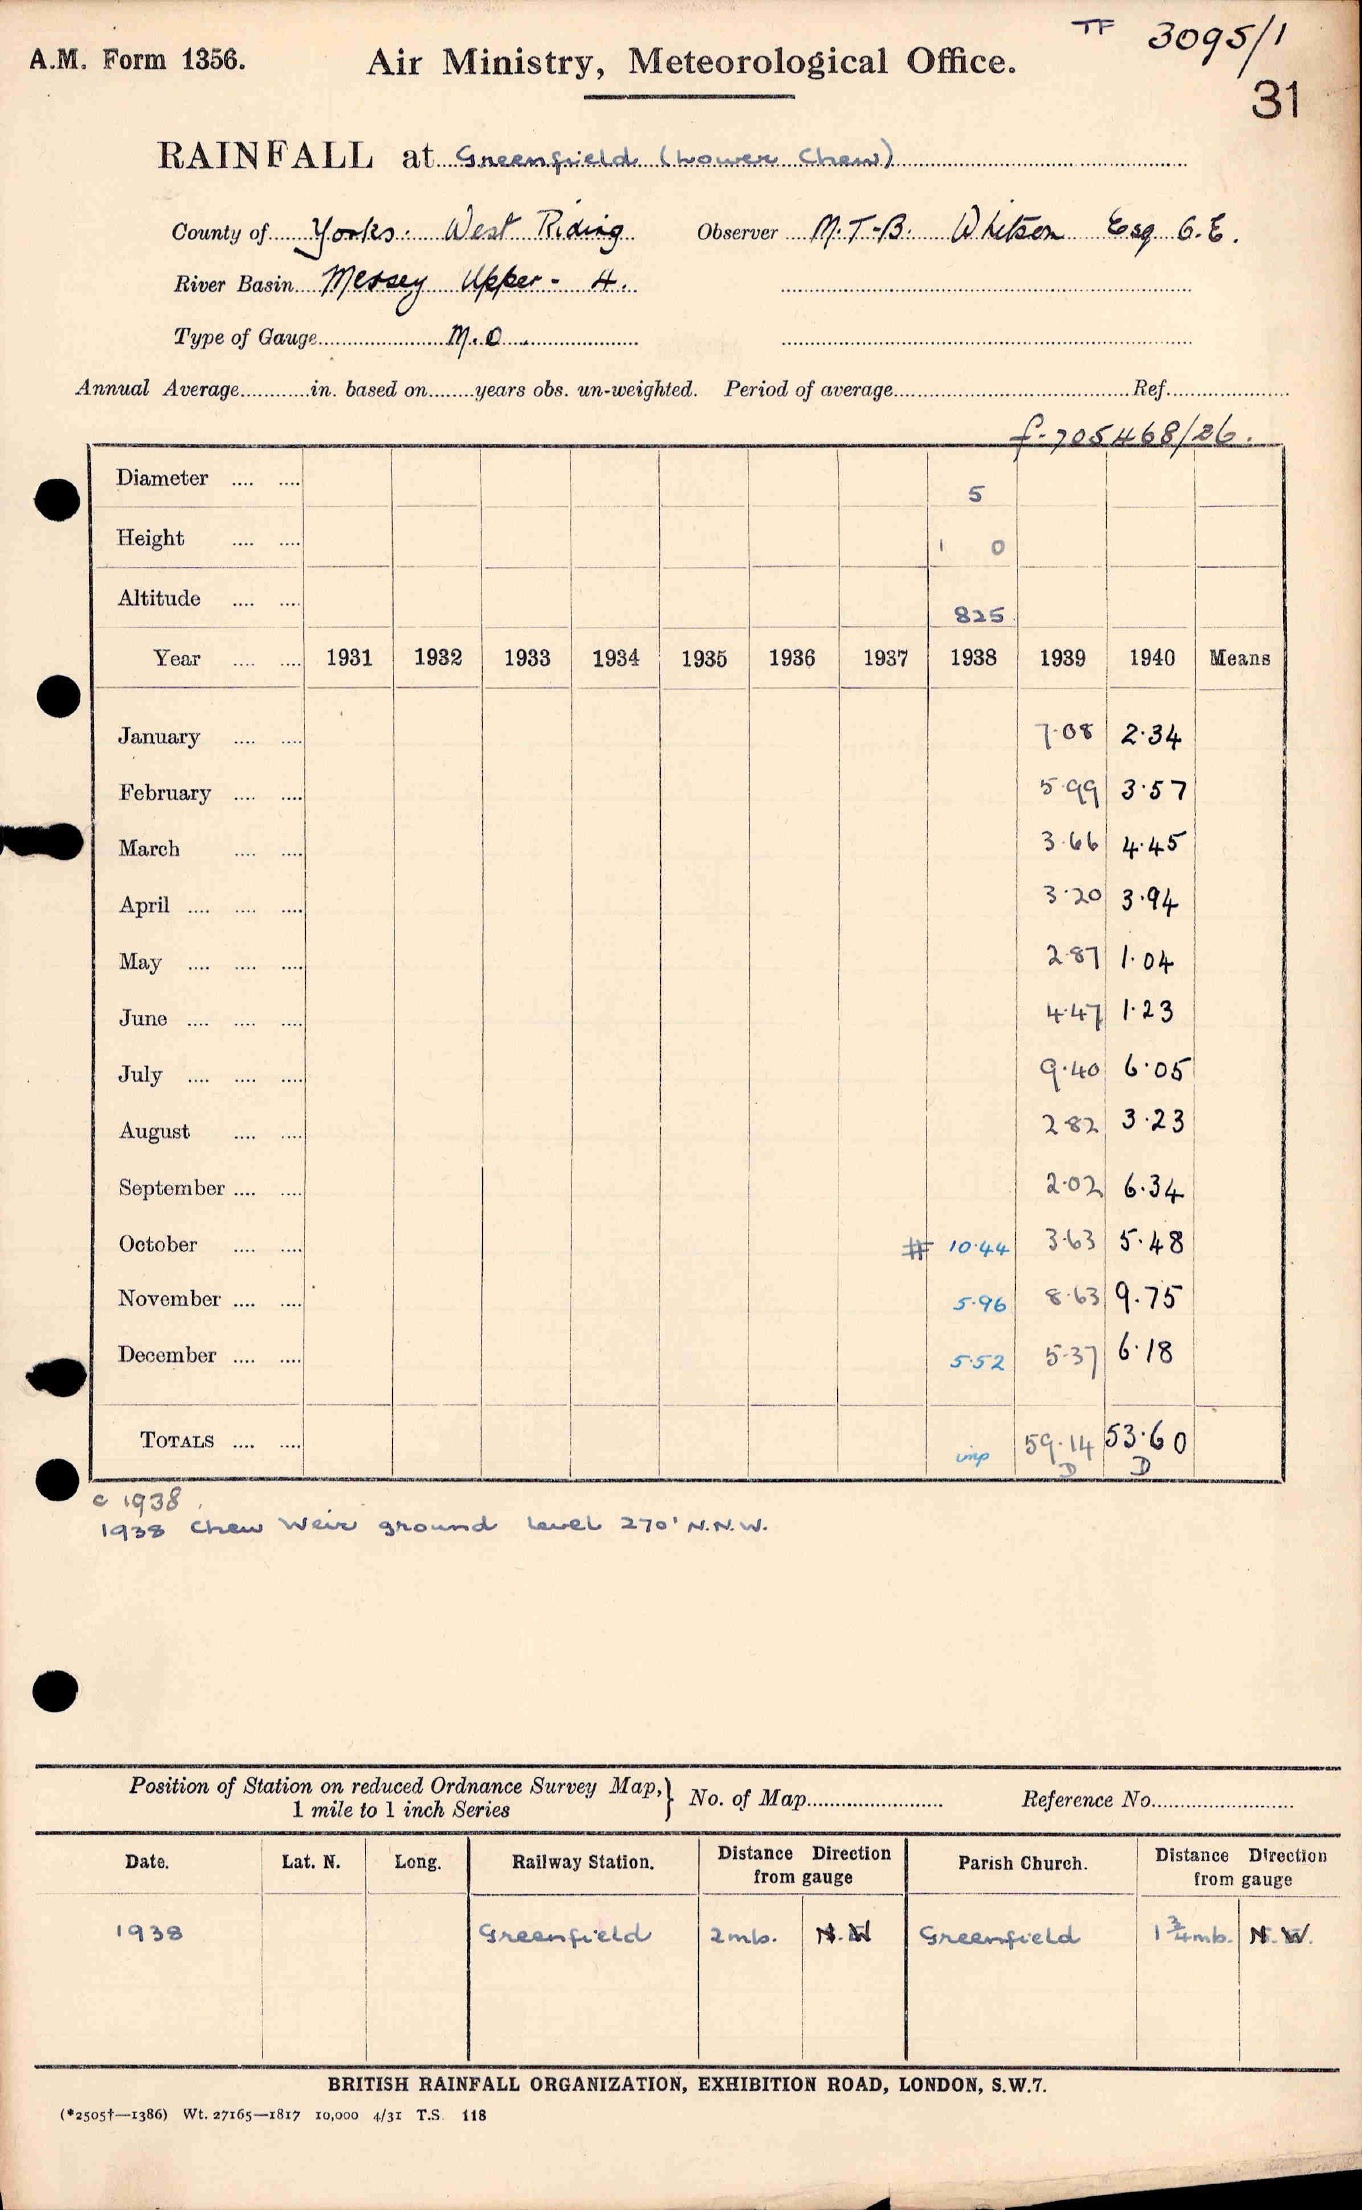 TF 3095/1
A.M. Form 1356. Air Ministry, Meteorological Office.
31
RAINFALL at Greenfield (Lower Chew)
County of Yorks. West Riding Observer M.T-B. Whitson Esq C.E.
River Basin Mersey Upper - 4.
Type of Gauge M.O.
Annual Average............in. based on........years obs. un-weighted. Period of average.................Ref.................
f-705468/36.
Diameter .... .... 5
Height .... .... 1 0
Altitude .... .... 825
Year .... .... 1931 1932 1933 1934 1935 1936 1937 1938 1939 1940 Means
January .... .... 7.08 2.34
February .... .... 5.99 3.57
March .... .... 3.66 4.45
April .... .... .... 3.20 3.94
May .... .... .... 2.87 1.04
June .... .... .... 4.47 1.23
July .... .... .... 9.40 6.05
August .... .... 2.82 3.23
September .... .... 2.02 6.34
October .... .... # 10.44 3.63 5.48
November .... .... 5.96 8.63 9.75
December .... .... 5.52 5.37 6.18
TOTALS .... .... imp 59.14 53.60
D D
c 1938
1938 Chew Weir ground level 270' N.N.W.
Position of Station on reduced Ordnance Survey Map, } No. of Map........................ Reference No.........................
1 mile to 1 inch Series
Date. Lat. N. Long. Railway Station. Distance Direction from gauge Parish Church. Distance Direction from gauge
1938 Greenfield 2 mls. N.W Greenfield 1 3/4 mls. N.W.
BRITISH RAINFALL ORGANIZATION, EXHIBITION ROAD, LONDON, S.W.7.
(*2505†—1386) Wt. 27165—1817 10,000 4/31 T.S. 118